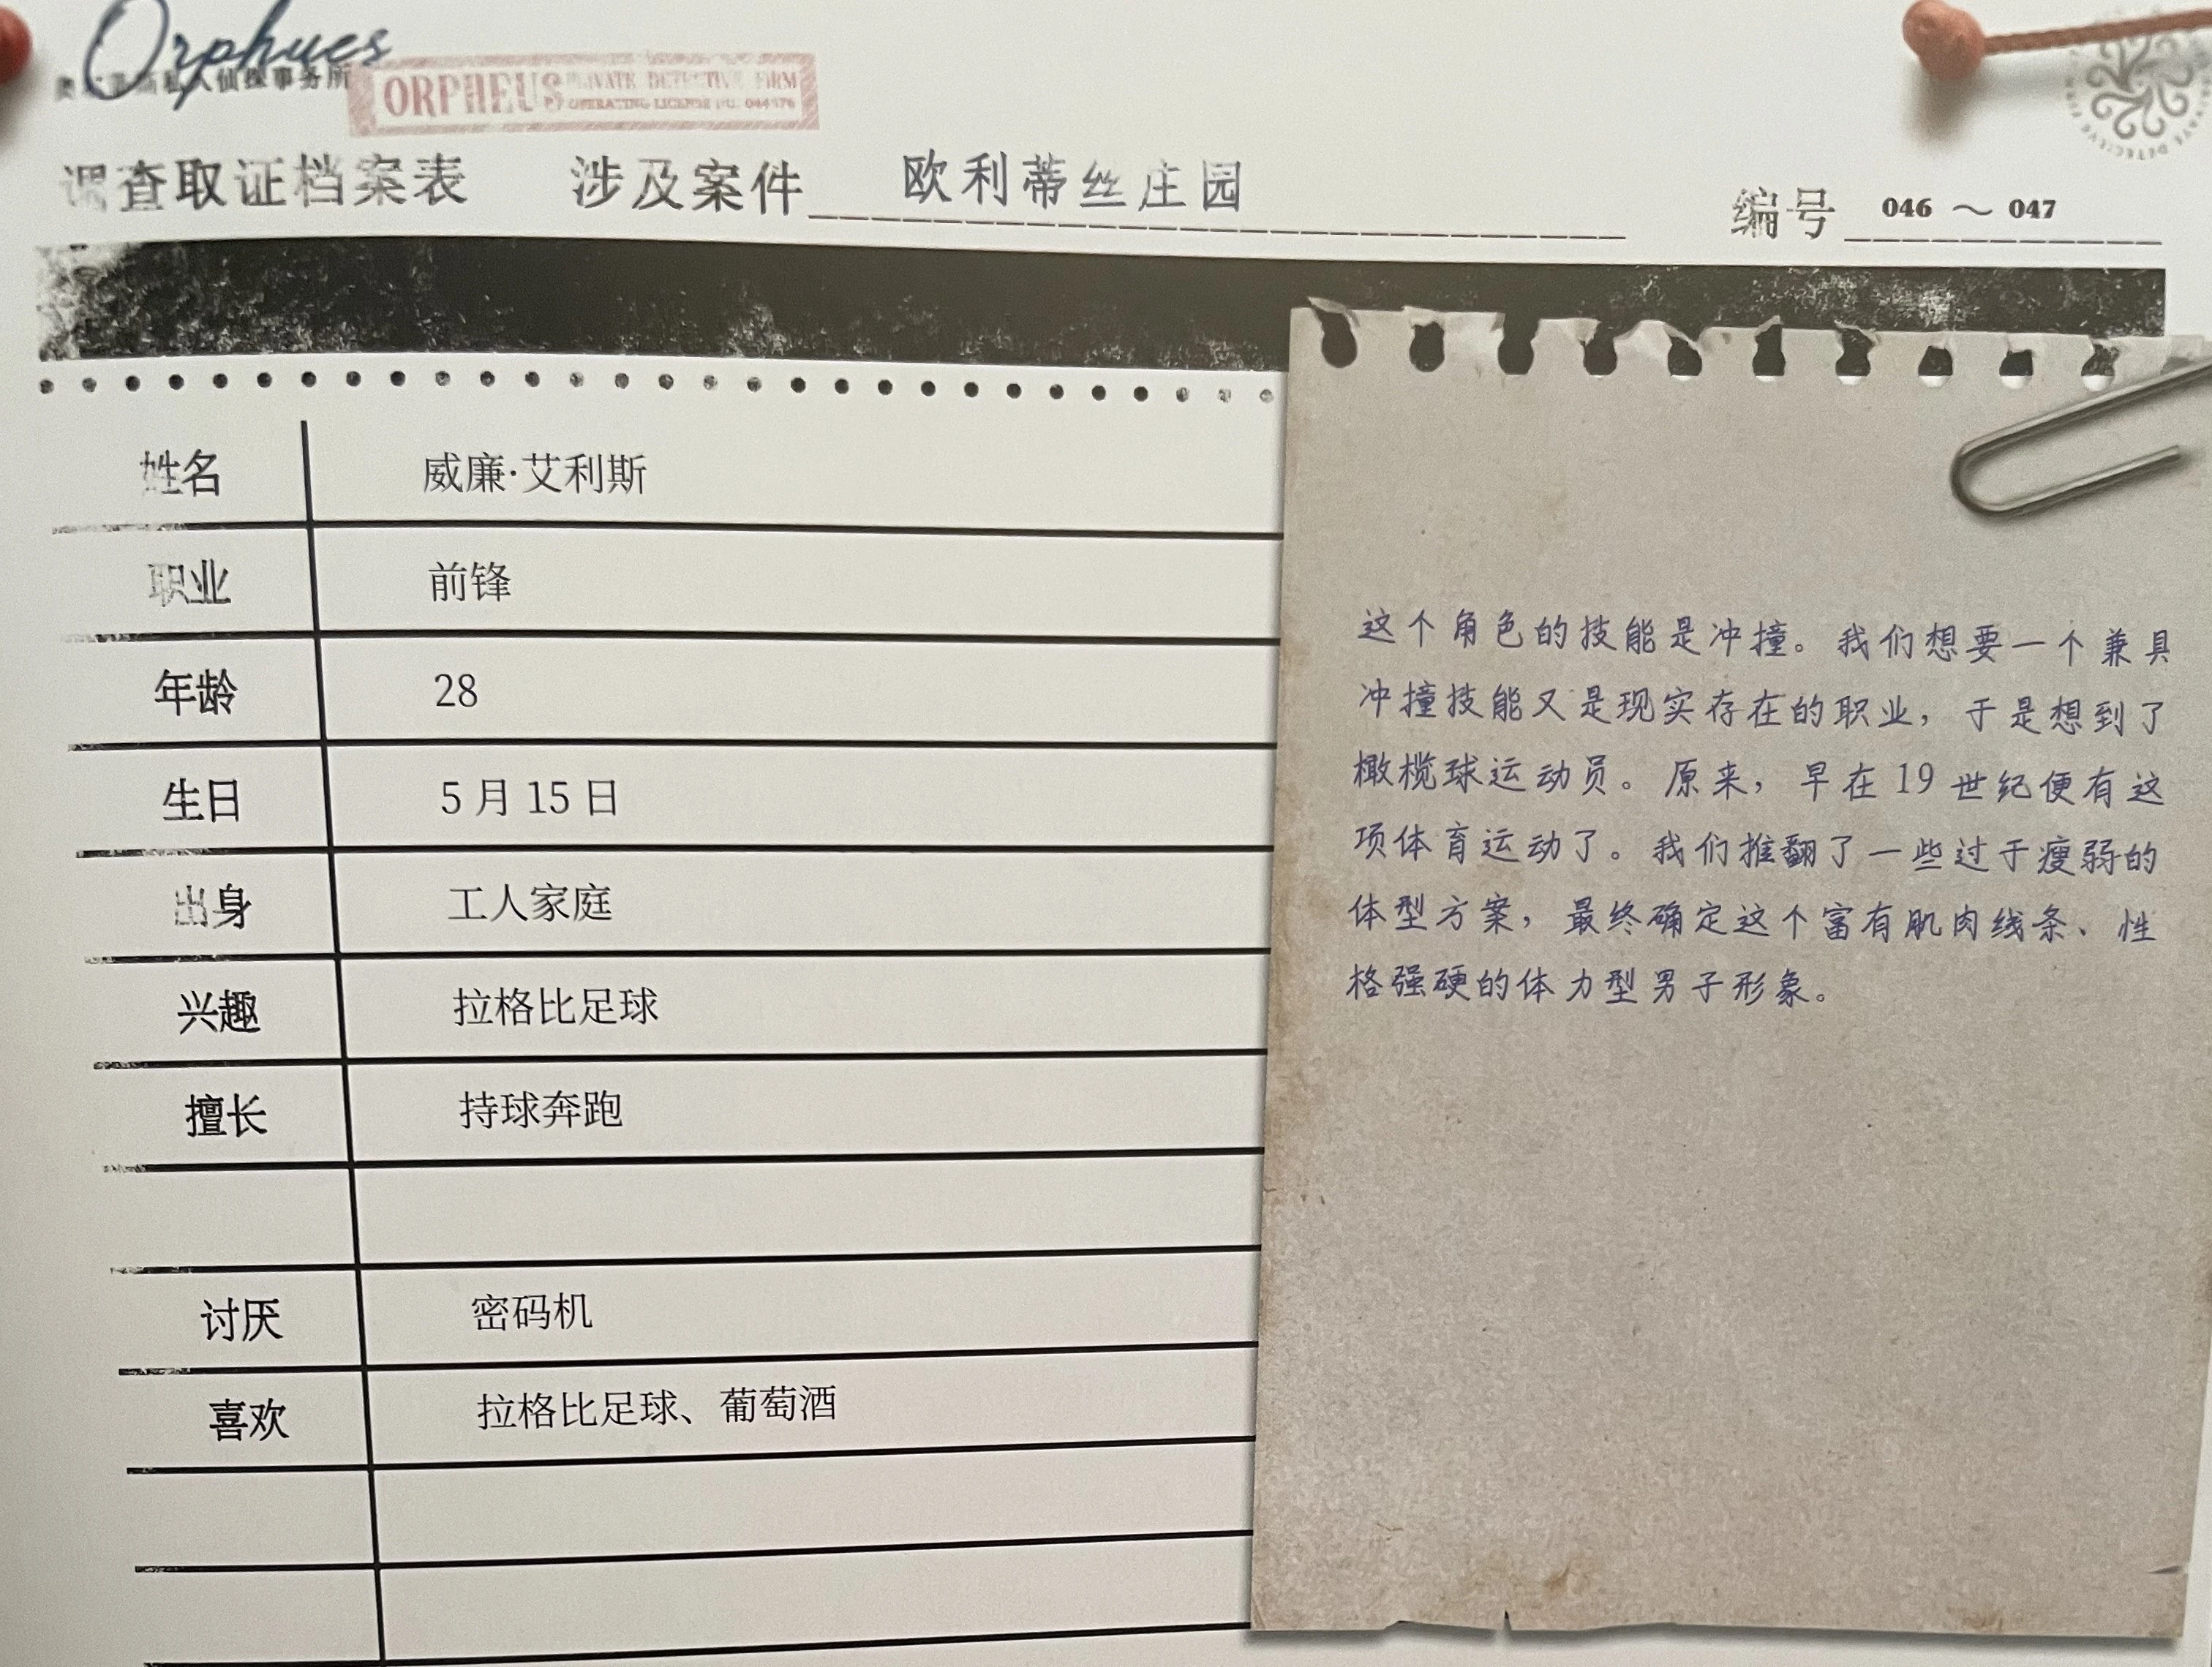 Orphues
私人侦探事务所
ORPHEUS PRIVATE DETECTIVE FIRM
OPERATING LICENSE
调查取证档案表 涉及案件 欧利蒂丝庄园 编号 046 ～ 047
姓名 威廉·艾利斯
职业 前锋
年龄 28
生日 5 月 15 日
出身 工人家庭
兴趣 拉格比足球
擅长 持球奔跑
讨厌 密码机
喜欢 拉格比足球、葡萄酒
这个角色的技能是冲撞。我们想要一个兼具
冲撞技能又是现实存在的职业，于是想到了
橄榄球运动员。原来，早在 19 世纪便有这
项体育运动了。我们推翻了一些过于瘦弱的
体型方案，最终确定这个富有肌肉线条、性
格强硬的体力型男子形象。